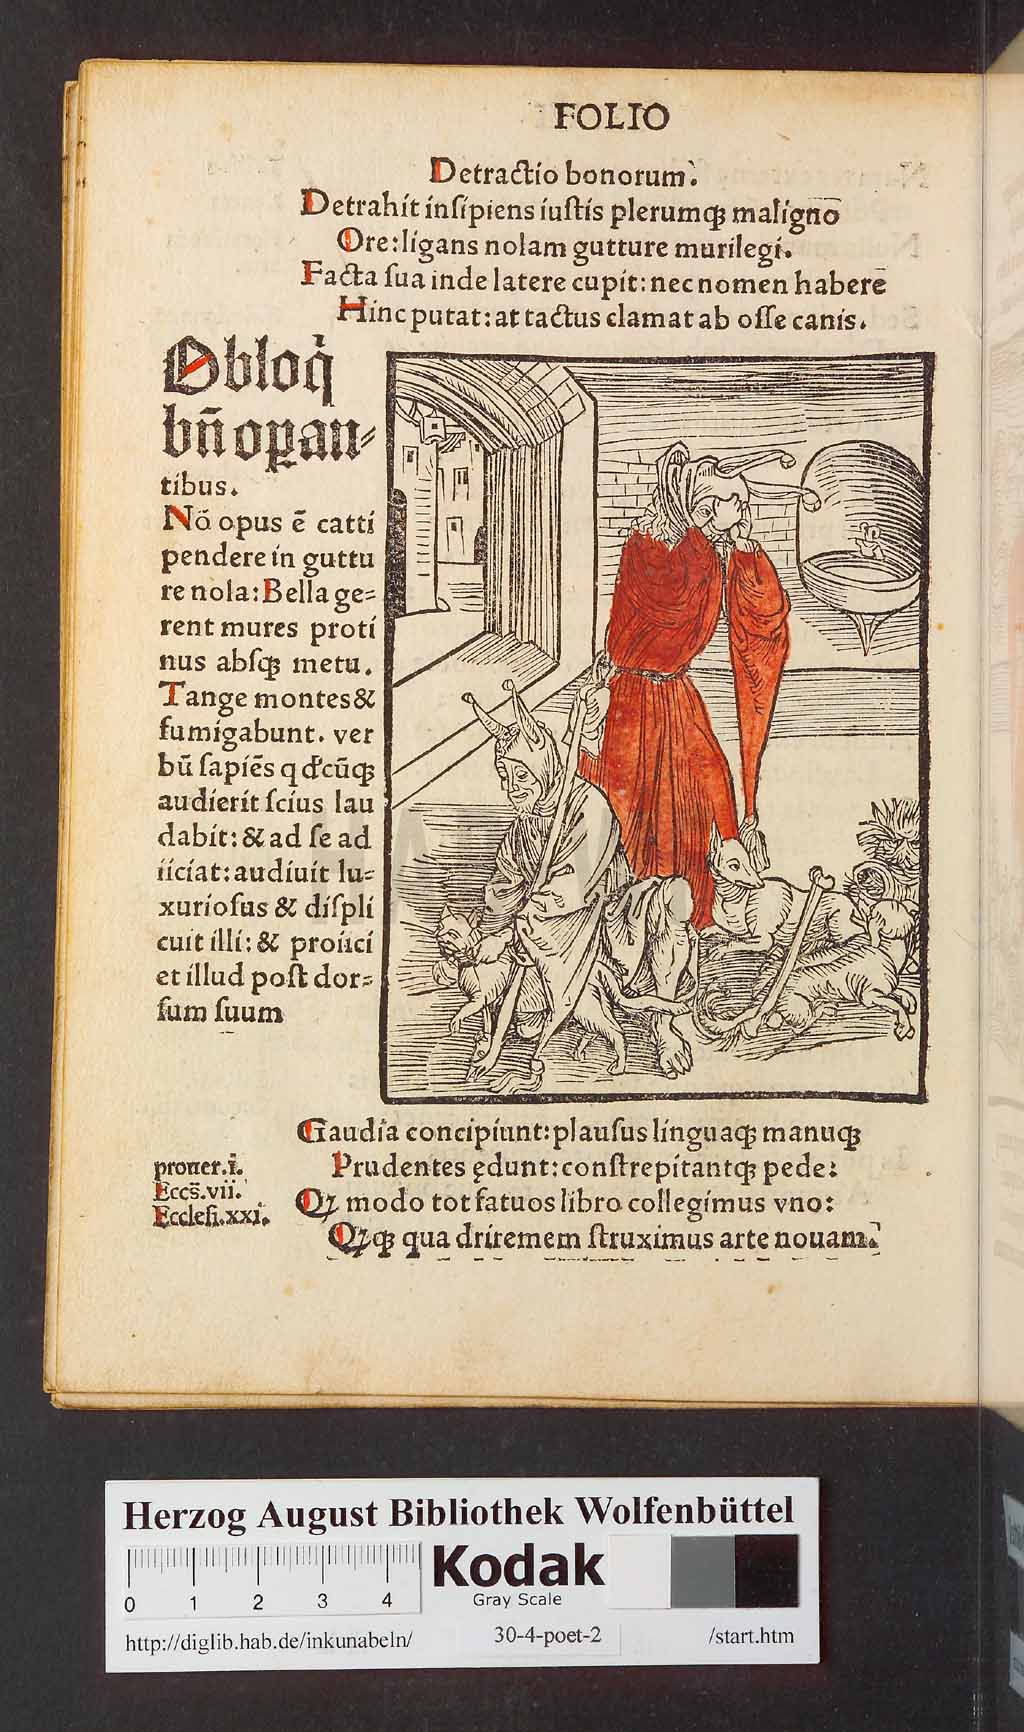 FOLIO
Detractio bonorum.
Detrahit inſipiens iuſtis plerumqꝫ malignō
Ore:ligans nolam gutture murilegi.
Facta ſua inde latere cupit: nec nomen haberē
Hinc putat: at tactus clamat ab oſſe canis.
Obloq̇
bn̄ oꝑan⸗
tibus.
Nō opus ē catti
pendere in guttu
re nola: Bella ge⸗
rent mures proti
nus abſqꝫ metu.
Tange montes &
fumigabunt. ver
bū ſapiēs q d'cūqꝫ
audierit ſcius lau
dabit: & ad ſe ad
iiciat: audiuit lu⸗
xurioſus & diſpli
cuit illi: & proiici
et illud poſt dor⸗
ſum ſuum
Gaudia concipiunt: plauſus linguaqꝫ manuqꝫ
Prudentes ędunt: conſtrepitantqꝫ pede:
prouer.ī.
Eccs̄.vii.
Qꝫ modo tot fatuos libro collegimus vno:
Eccleſi.xxi.
Qꝫqꝫ qua driremem ſtruximus arte nouam.
Herzog August Bibliothek Wolfenbüttel
0 1 2 3 4
Kodak
Gray Scale
http://diglib.hab.de/inkunabeln/ 30-4-poet-2 /start.htm